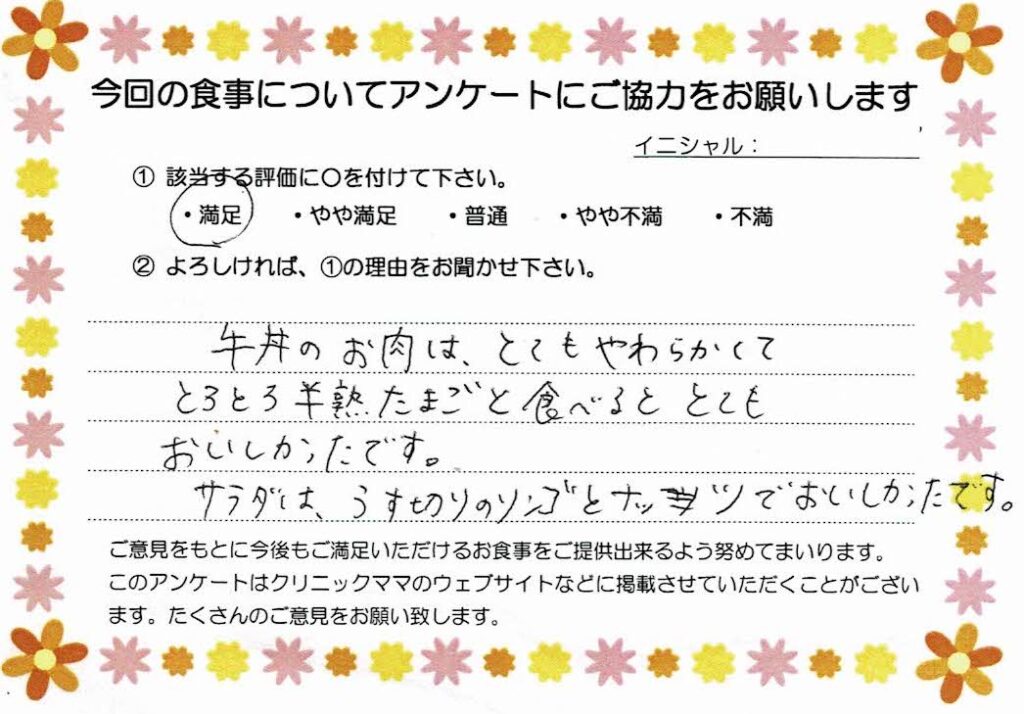 今回の食事についてアンケートにご協力をお願いします
イニシャル：
① 該当する評価に〇を付けて下さい。
・満足 ・やや満足 ・普通 ・やや不満 ・不満
② よろしければ、①の理由をお聞かせ下さい。
牛丼のお肉は、とてもやわらかくて
とろとろ半熟たまごと食べるととても
おいしかったです。
サラダは、うす切りのリンゴとナッツでおいしかったです。
ご意見をもとに今後もご満足いただけるお食事をご提供出来るよう努めてまいります。
このアンケートはクリニックママのウェブサイトなどに掲載させていただくことがござい
ます。たくさんのご意見をお願い致します。